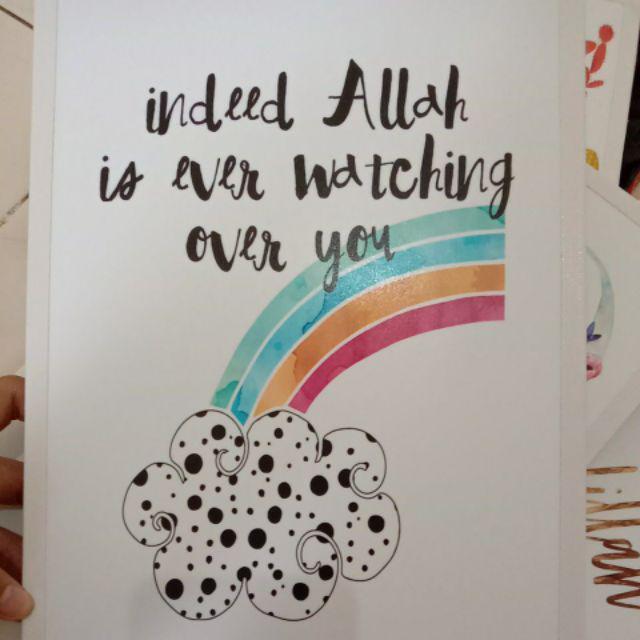 indeed Allah
is ever watching
over you